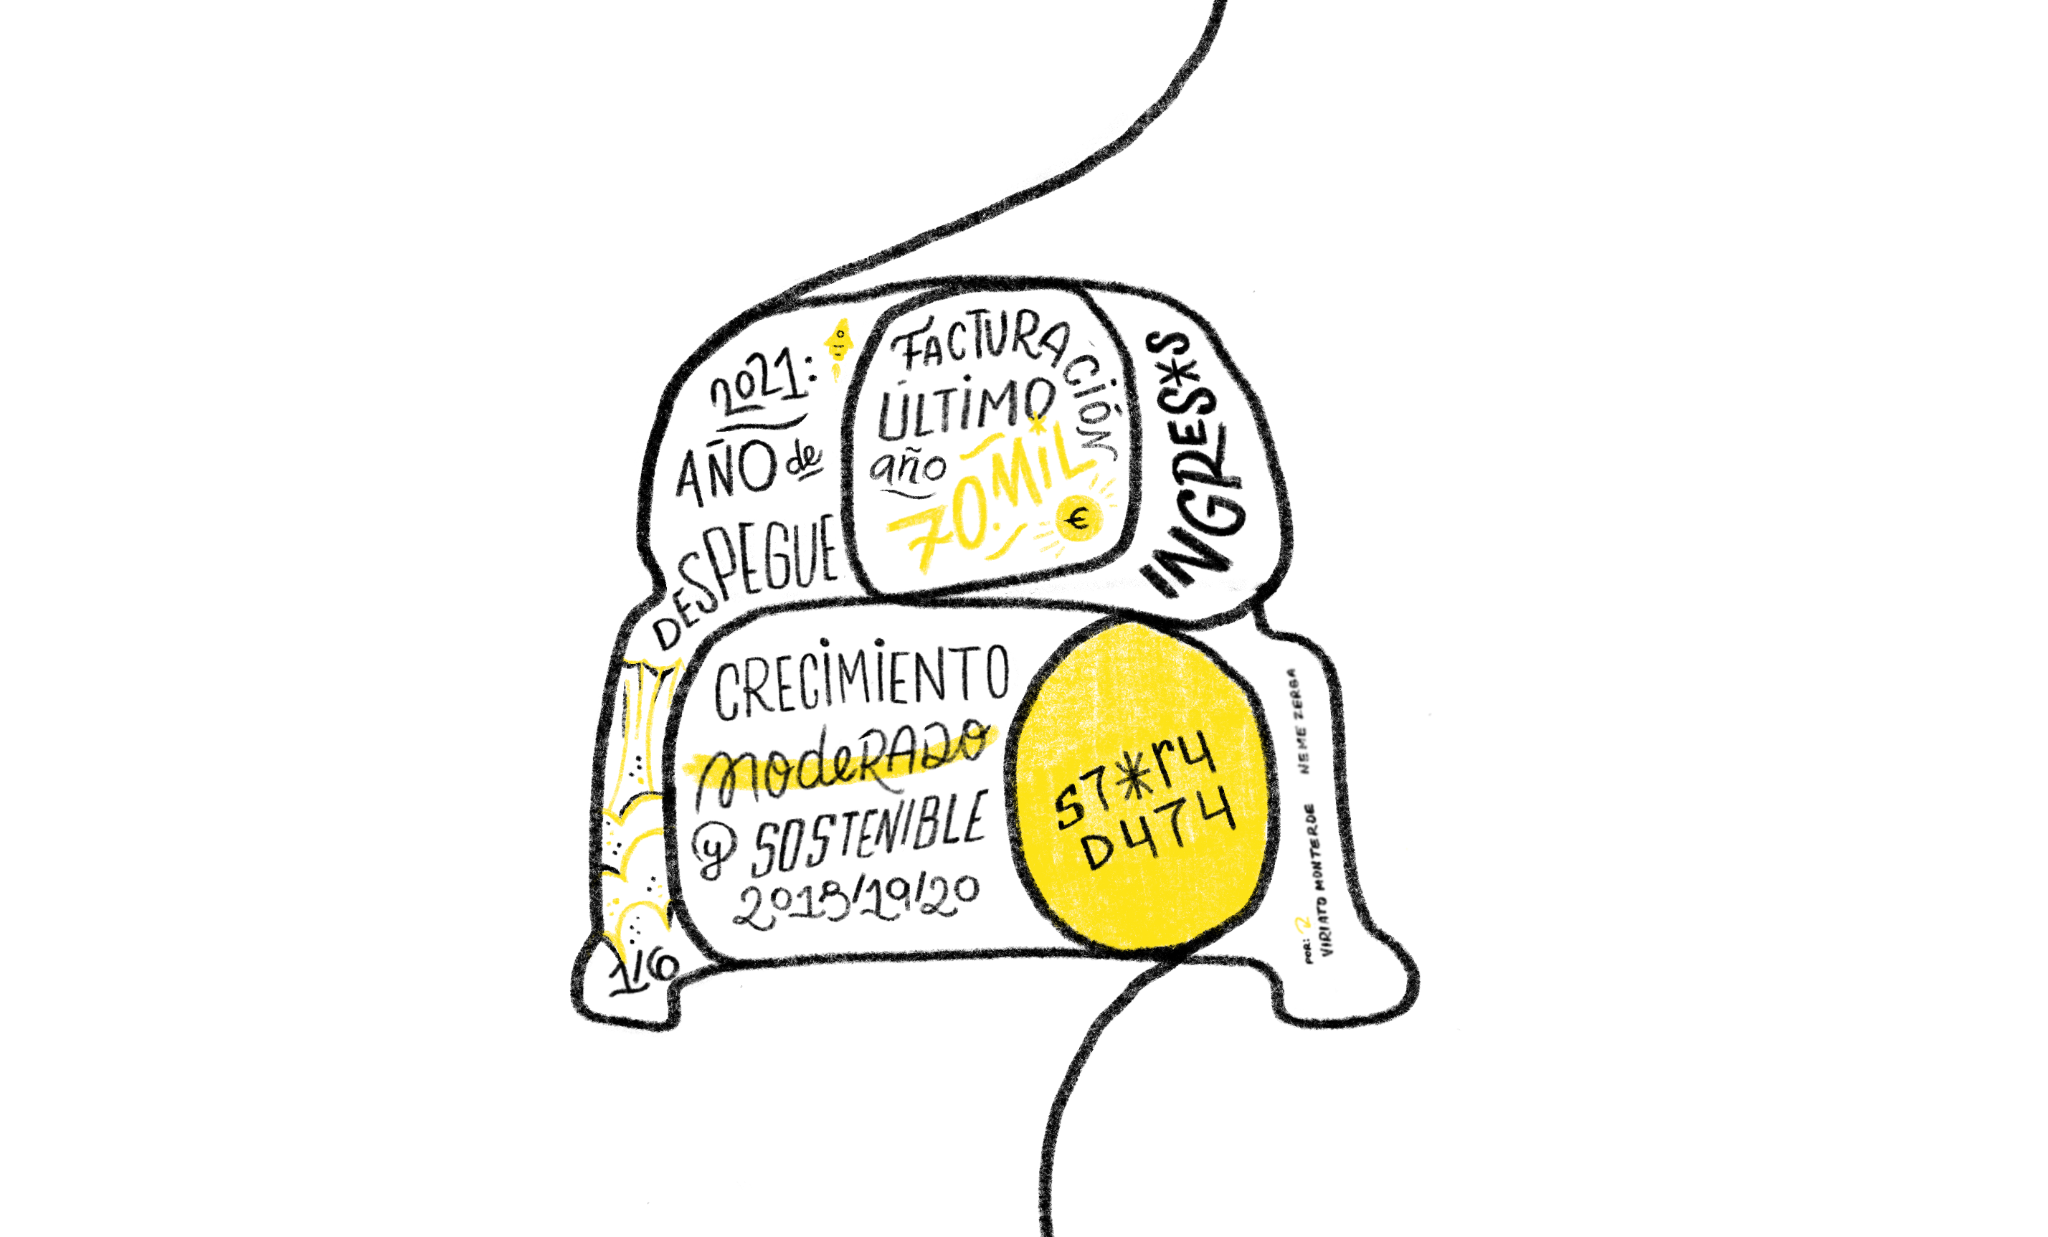 2021:
AÑO de
DESPEGUE
FACTURACIÓN
ÚLTIMO
año
70.MIL
€
INGRES*S
CRECIMIENTO
MODERADO
y SOSTENIBLE
2018/19/20
S7*rY
D474
1/6
POR:
VIRIATO MONTERDE
NEME ZERBA